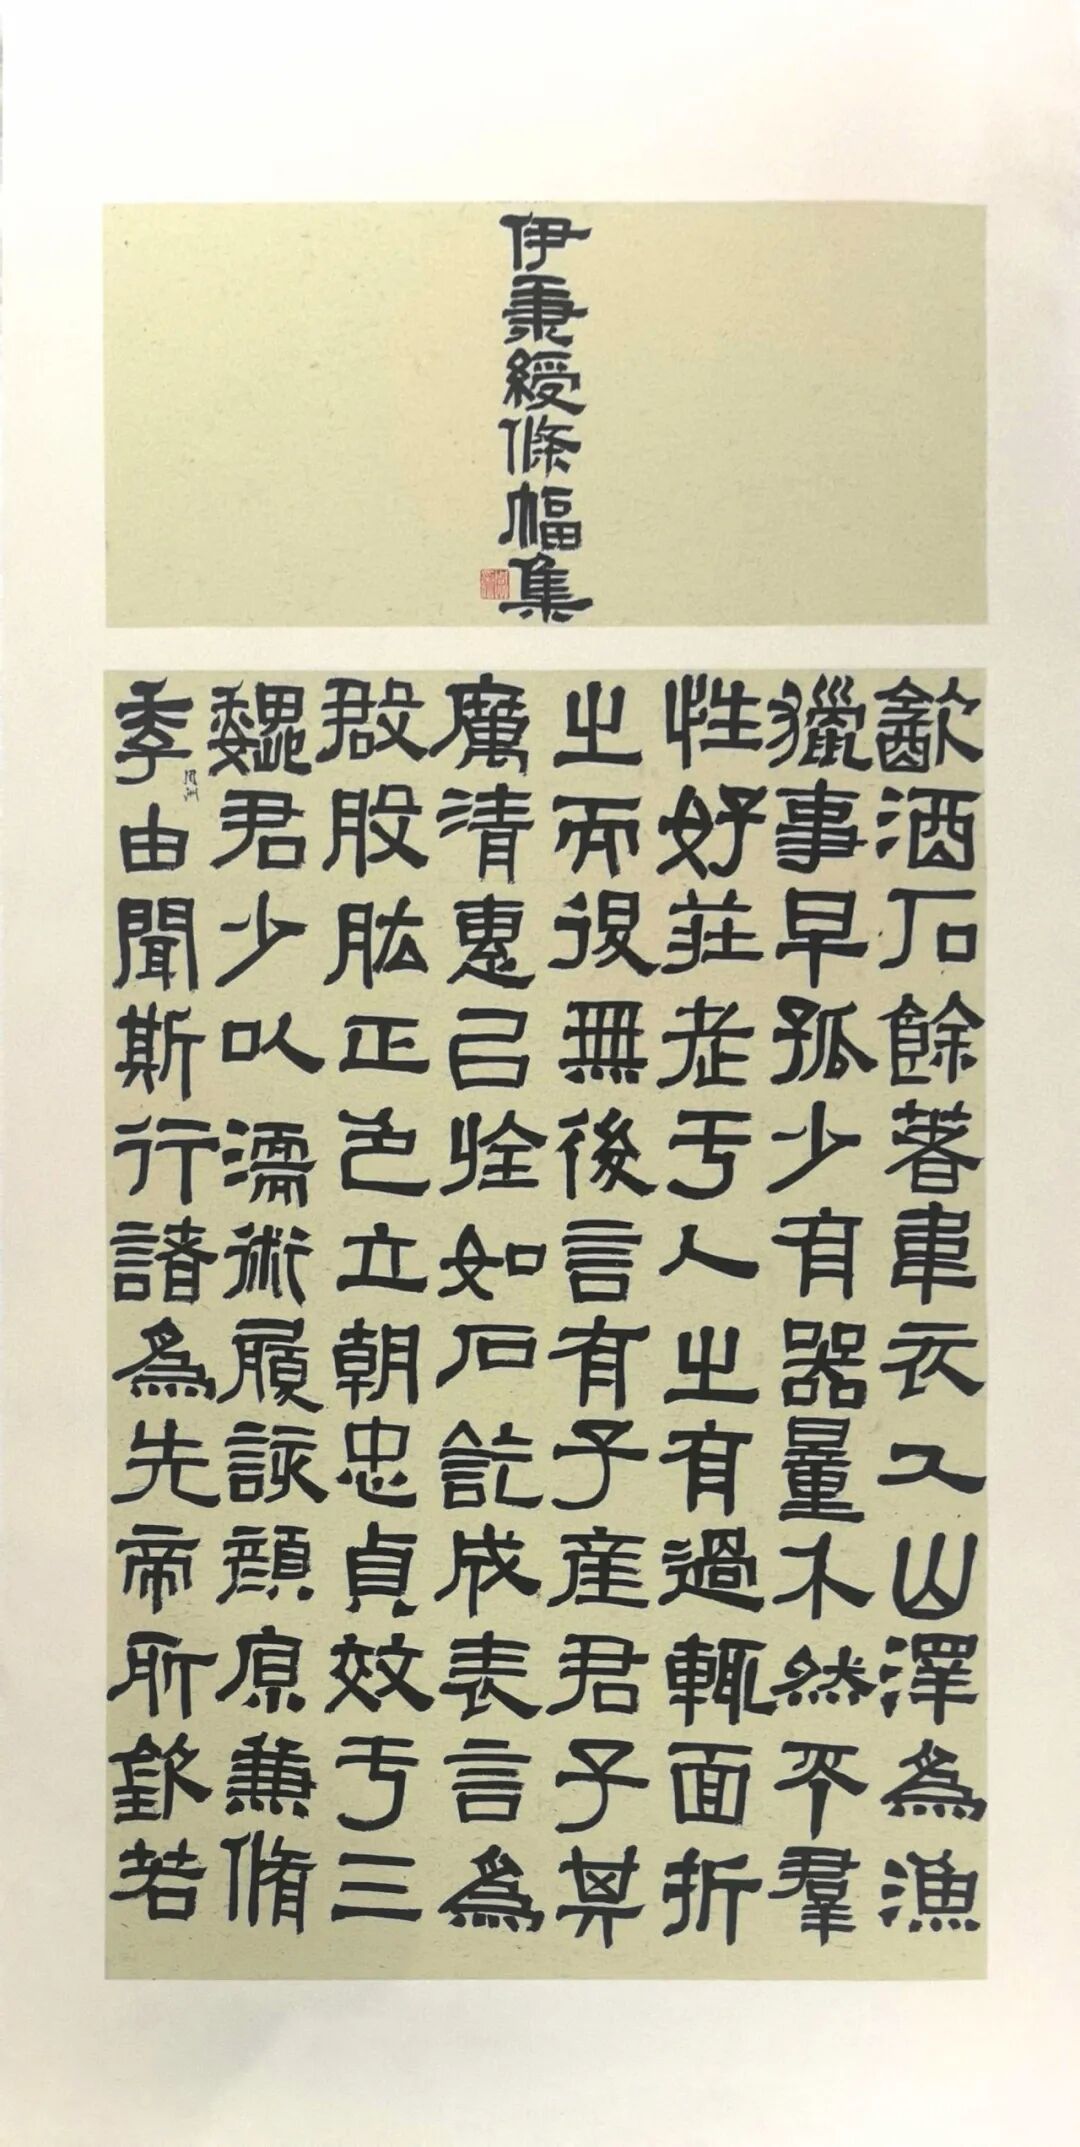 伊秉綬條幅集
㱃酒石餘著韋衣入山澤為漁
獵事早孤少有器量不然平羣
性好莊老于人之有過輒面折
之而復無後言有子產君子其
廣清惠己恮如石成表言為
股肱正色立朝忠貞效于三
魏君少以濡術履詠顏原兼脩
季由聞斯行諸為先帝所欽若